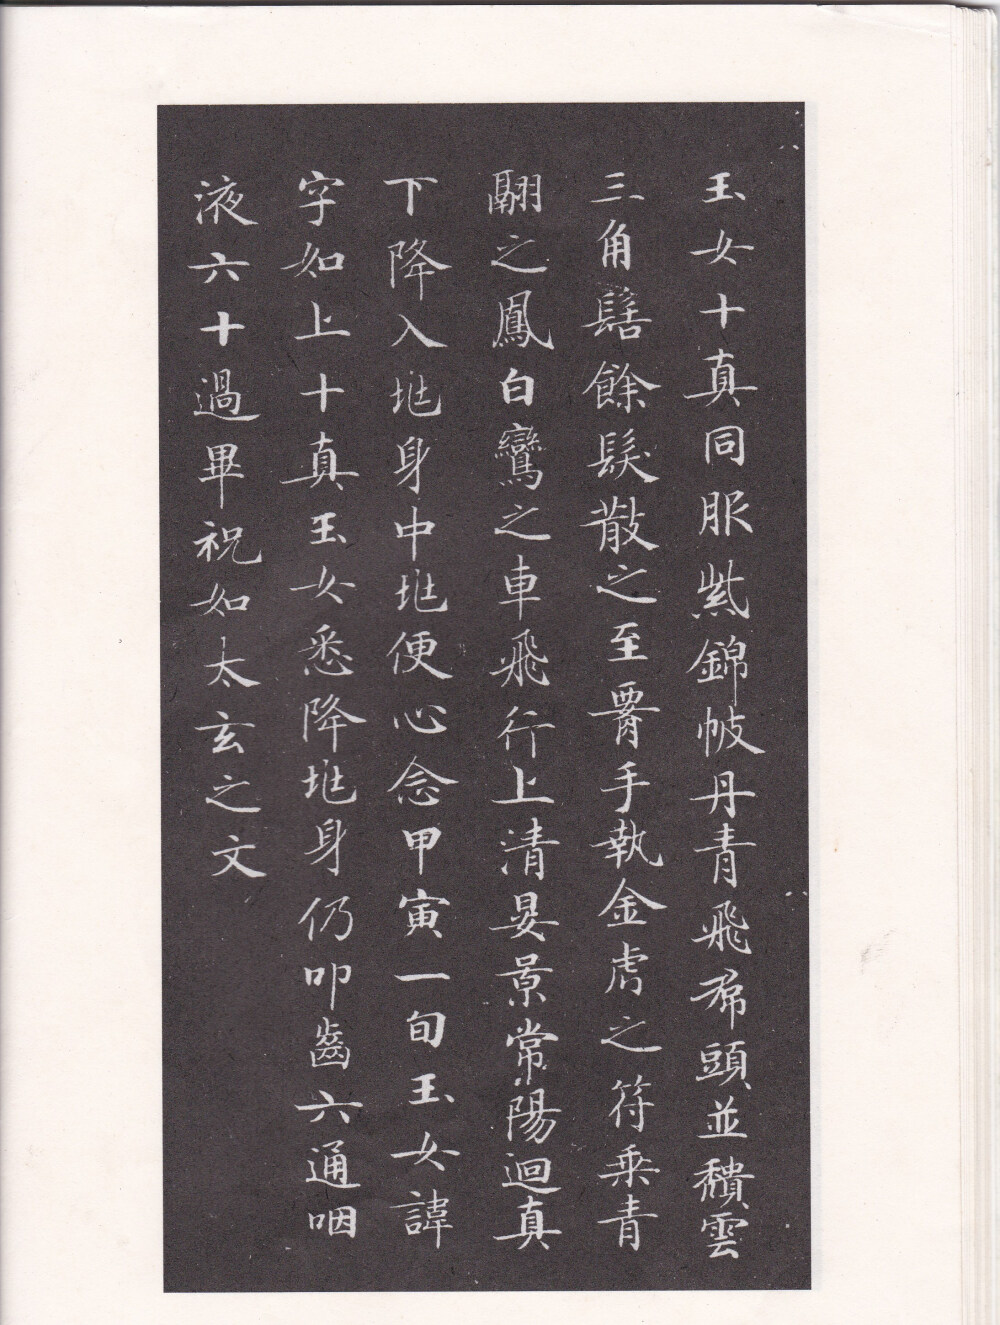 玉女十真同服紫錦帔丹青飛帬頭並穨雲
三角髻餘髮散之至署手執金虎之符乘青
翮之鳳白鸞之車飛行上清晏景常陽迴真
下降入兆身中兆便心念甲寅一旬玉女諱
字如上十真玉女悉降兆身仍叩齒六通咽
液六十過畢祝如太玄之文